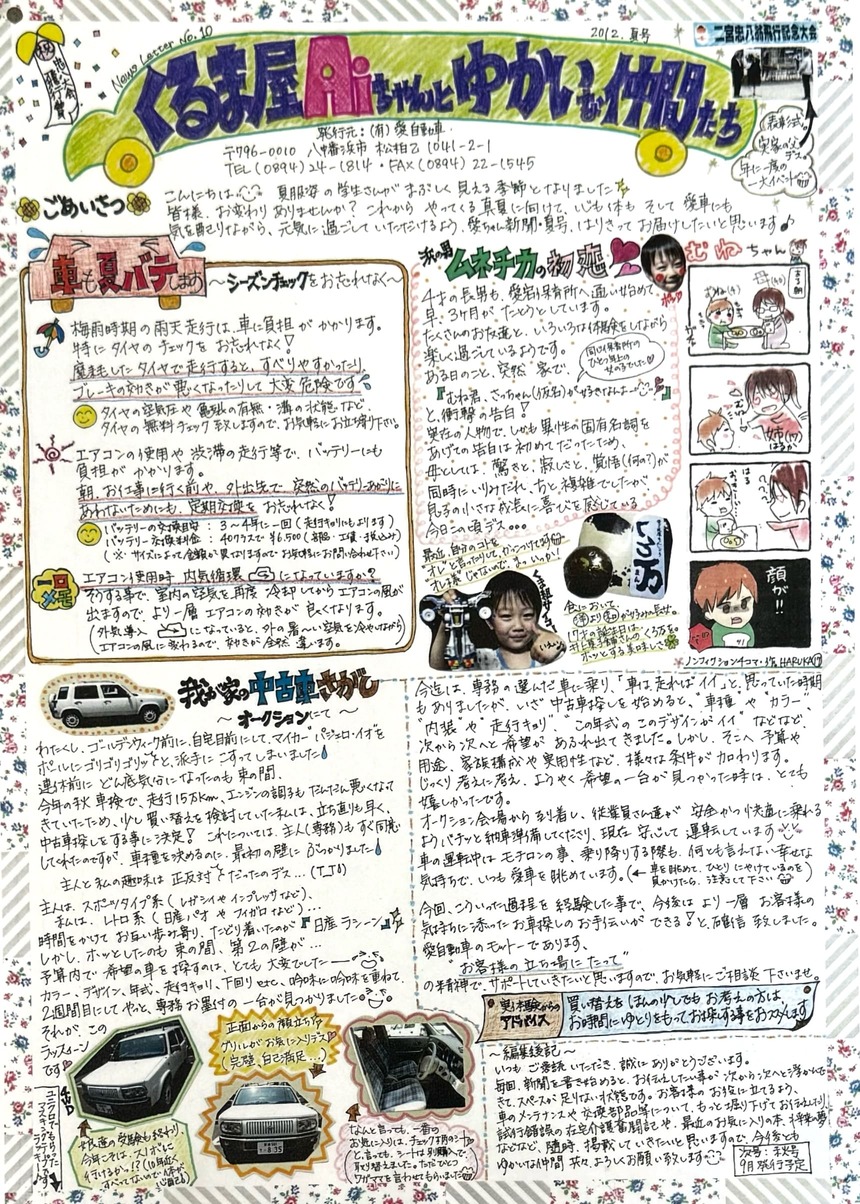 News Letter No.10
2012. 夏号
二宮忠八翁飛行記念大会
祝
くるま屋Aiちゃんとゆかいな仲間たち
発行元：(有) 愛自動車
〒796-0010 八幡浜市 松柏乙 1041-2-1
TEL (0894) 24-1814・FAX (0894) 22-1545
表彰式。
実家の父
デス。
年に一度の
一大イベント
ごあいさつ
こんにちは 夏服姿の学生さんが まぶしく見える季節となりました
皆様、お変わりありませんか？これから やってくる真夏に向けて、心も体も そして 愛車にも
気を配りながら、元気に過ごしていただけるよう、愛ちゃん新聞・夏号、はりきってお届けしたいと思います♪
車も夏バテします
～シーズンチェックをお忘れなく～
梅雨時期の雨天走行は、車に負担がかかります。
特にタイヤのチェックをお忘れなく！
磨耗したタイヤで走行すると、すべりやすかったり、
ブレーキの効きが悪くなったりして大変危険です
タイヤの空気圧や亀裂の有無・溝の状態など、
タイヤの無料チェック致しますので、お気軽にお立寄り下さい。
エアコンの使用や渋滞の走行等で、バッテリーにも
負担がかかります。
朝、お仕事に行く前や、外出先で、突然のバッテリーあがりに
あわないためにも、定期交換をお忘れなく！
バッテリーの交換目安：3～4年に一回（走行キョリにもよります）
バッテリー交換料金：40サイズで ¥6,500（部品・工賃・税込み）
（※サイズによって金額が異なりますのでお気軽にお問い合わせ下さい）
一口メモ
エアコン使用時、内気循環 になっていますか？
そうする事で、室内の空気を再度 冷却してからエアコンの風が
出ますので、より一層 エアコンの効きが良くなります。
（外気導入 になっていると、外の暑～い空気を冷やしながら
エアコンの風に変わるので、効きが全然 違います。
我が男
ムネチカの初恋
4才の長男も、愛宕保育所へ通い始めて
早、3ヶ月がたとうとしています。
たくさんのお友達と、いろいろな体験をしながら
楽しく過ごしているようです。
ある日のこと、突然 家で、
同じ保育所の
ひとつ年上の
女の子でした
『むね君、さっちゃん（仮名）が好きなんよー』
と、衝撃の告白！
実在の人物で、しかも異性の固有名詞を
あげての告白は初めてだったため、
母としては、驚きと、寂しさと、覚悟（何の？）が
同時にいりみだれ、ちと複雑でしたが
息子の小さな成長に喜びを感じている
今日この頃デス…
最近、自分のコトを
オレと言ったりして、かっこつけてますが
オレ様じゃないで、よういっか！
いろ万
むねちゃん
ある朝
むね(4)
母(40)
姉(17)
はるか
顔が!!
ノンフィクション4コマ・作 HARUKA(17)
我が家の中古車さがし
～オークションにて～
わたくし、ゴールデンウィーク前に、自宅目前にして、マイカー“パジェロ・イオ”を
ポールにゴリゴリゴリッと、派手にこすってしまいました
連休前に どん底気分になったのも束の間、
今年の秋 車検で、走行15万km、エンジンの調子もだんだん悪くなって
きていたため、少し買い替えを検討していた私は、立ち直りも早く、
中古車探しをする事に決定！これについては、主人（専務）もすぐ同意
してくれたのですが、車種を決めるのに、最初の壁にぶつかりました
主人と私の趣味は正反対だったのデス…(T_T)
主人は、スポーツタイプ系（レガシィやインプレッサなど）、
私は、レトロ系（日産パオやフィガロなど）…
時間をかけてお互い歩み寄り、たどり着いたのが『日産 ラシーン』
しかし、ホッとしたのも束の間、第2の壁が…
予算内で 希望の車を探すのは、とても大変でした―
カラー、デザイン、年式、走行キョリ、下回り etc、吟味に吟味を重ねて
2週間目にしてやっと、専務お墨付の一台が見つかりました。
それが、この
ラシーン
です
正面からの顔立ちで、
グリルがお気に入りデス
（完璧、自己満足…）
なんと言っても、一番の
お気に入りは、チェック柄のシート
と言っても、シートは別購入で、
取り替えました。ただひとつ
ワガママを言わせてもらいました
今迄は、専務の選んだ車に乗り、「車は走ればイイ」と思っていた時期
もありましたが、いざ中古車探しを始めると、“車種やカラー”
“内装や走行キョリ”“この年式のこのデザインがイイ”などなど、
次から次へと希望があふれ出てきました。しかし、そこへ予算や
用途、家族構成や実用性など、様々な条件が加わります。
じっくり考えに考え、ようやく希望の一台が見つかった時は、とても
嬉しかったです。
オークション会場から到着し、従業員さん達が 安全かつ快適に乗れる
ようバチッと納車準備してくださり、現在 安心して 運転しています
車の運転中はモチロンの事、乗り降りする際も、何とも言わない幸せな
気持ちで、いつも愛車を眺めています。（←車を眺めて、ひとりにやけているのを
見かけたら、注意して下さい
今回、こういった過程を経験した事で、今後は より一層 お客様の
気持ちに添ったお車探しのお手伝いができる！と、確信 致しました。
愛自動車のモットーであります、
“お客様の立ち場にたって”
の精神で、サポートしていきたいと思いますので、お気軽にご相談下さいませ。
実体験からの
アドバイス
買い替えを ほんの少しでも お考えの方は、
お時間にゆとりをもってお探しする事をおススメします
～編集後記～
いつも ご愛読いただき、誠にありがとうございます。
毎回、新聞を書き始めると、お伝えしたい事が 次から次へと浮かんで
きて、スペースが足りない状態です。お客様のお役に立てるよう、
車のメンテナンスや交換部品等について、もっと掘り下げてお伝えしたり、
試行錯誤の在宅介護奮闘記や、最近のお気に入りの本、将来の夢
などなど、随時、掲載していきたいと思いますので、今後とも
ゆかいな仲間共々、よろしくお願い致します
次号：秋号
9月発行予定